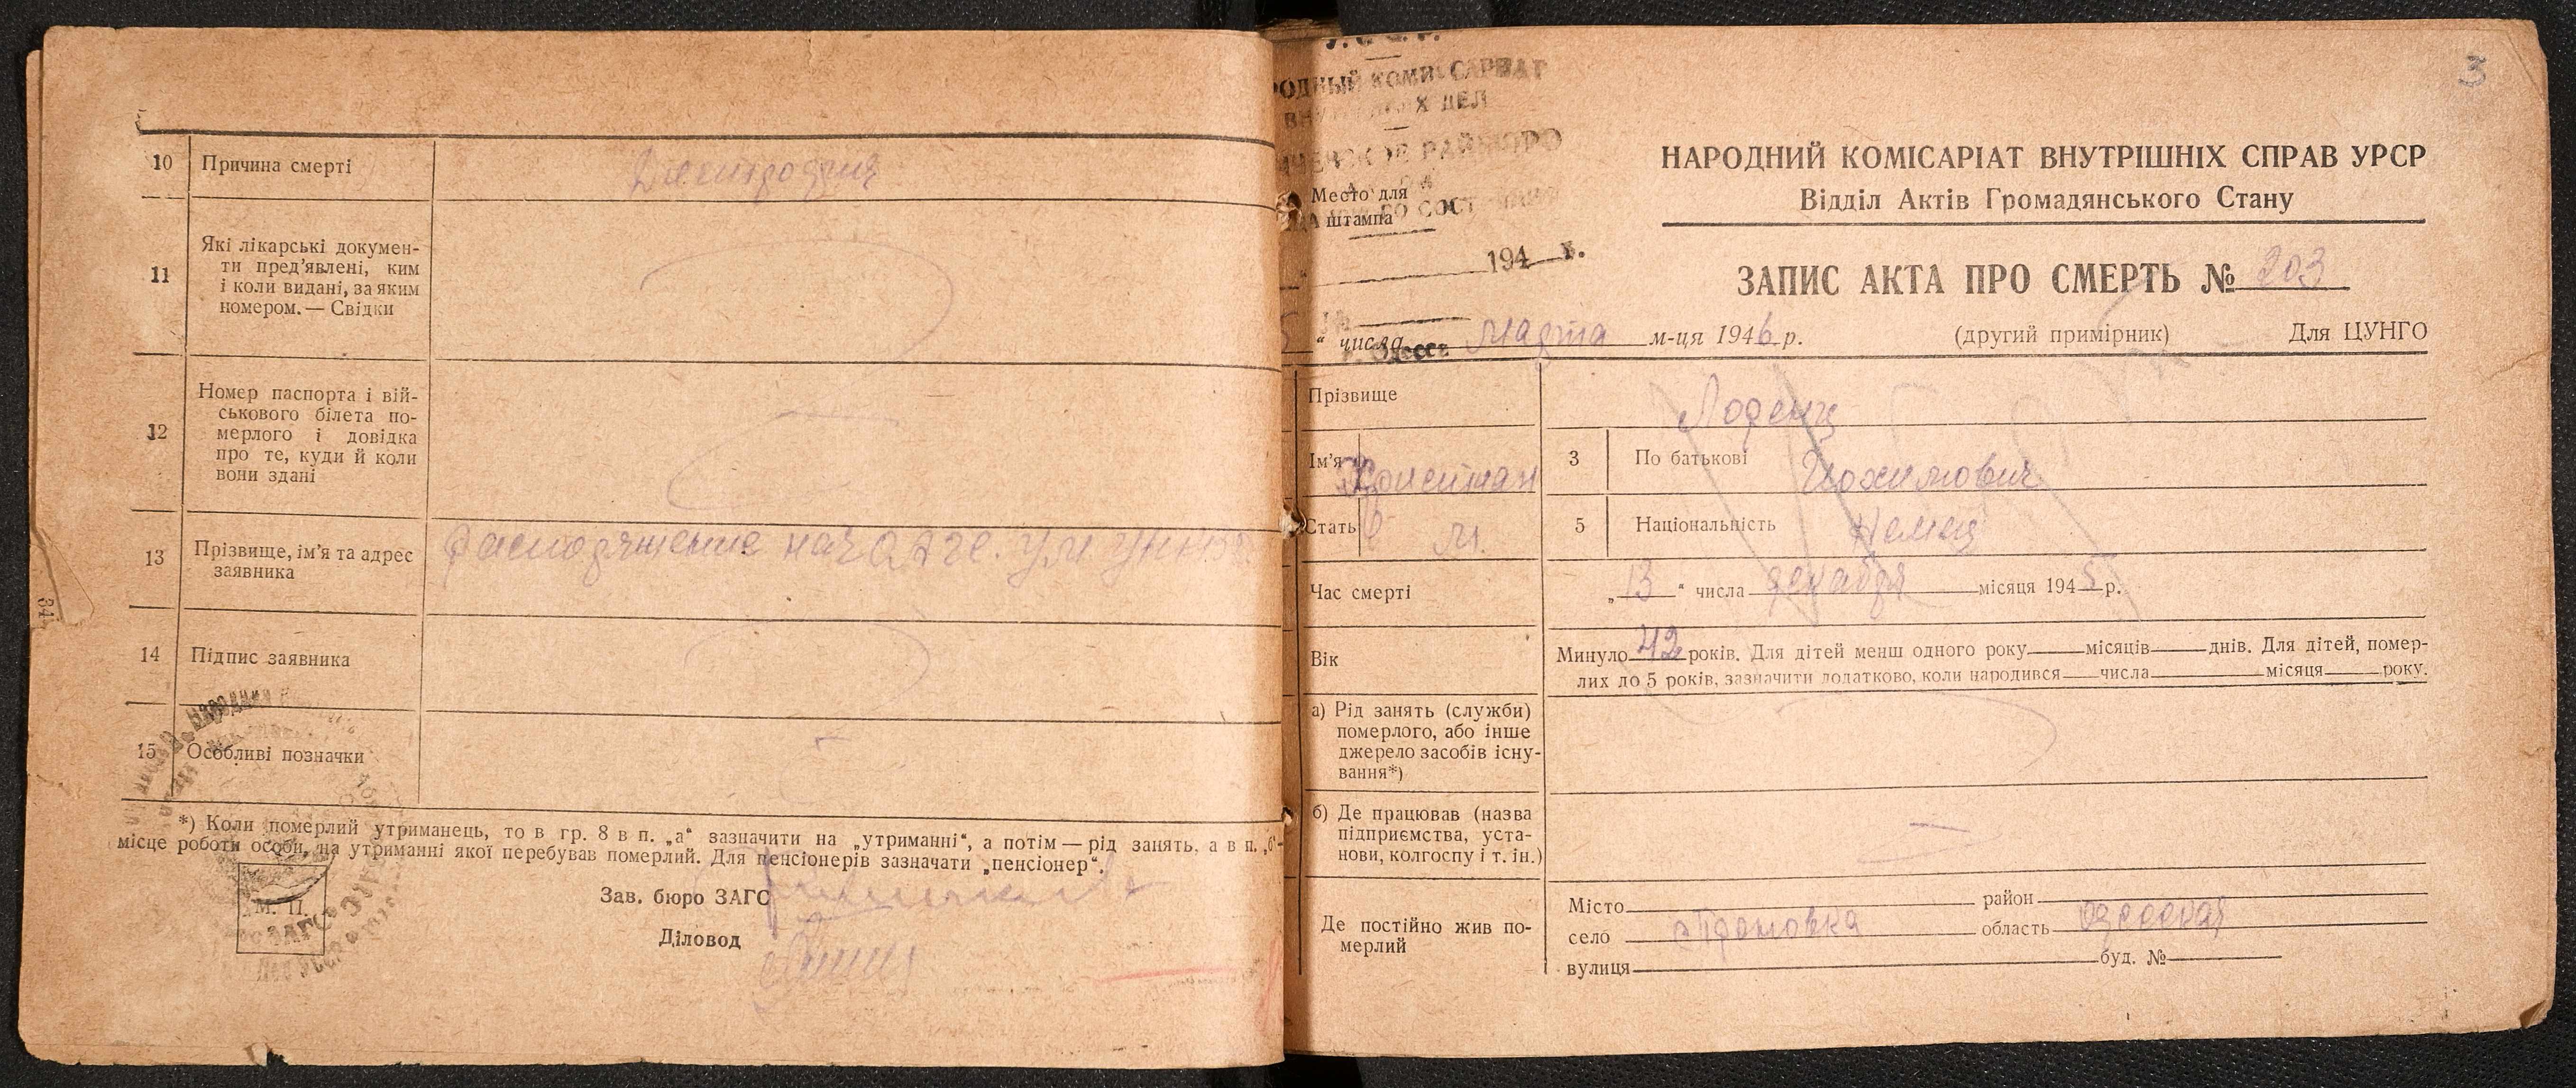 10 Причина смерті Дистрофия
11 Які лікарські докумен-
ти пред’явлені, ким
і коли видані, за яким
номером. — Свідки
12 Номер паспорта і вій-
ськового білета по-
мерлого і довідка
про те, куди й коли
вони здані
13 Прізвище, ім’я та адрес
заявника
14 Підпис заявника
15 Особливі позначки
*) Коли померлий утриманець, то в гр. 8 в п. „а“ зазначити на „утриманні“, а потім — рід занять, а в п. „б“-
місце роботи особи, на утриманні якої перебував померлий. Для пенсіонерів зазначати „пенсіонер“.
М. П.
Зав. бюро ЗАГС
Діловод
34
3
РОДНЫЙ КОМИССАРИАТ
ДЕЛ
РАЙБЮРО
Место для
штампа
194 г.
Одесса
НАРОДНИЙ КОМІСАРІАТ ВНУТРІШНІХ СПРАВ УРСР
Відділ Актів Громадянського Стану
ЗАПИС АКТА ПРО СМЕРТЬ № 203
“ числа марта м-ця 1946 р. (другий примірник) Для ЦУНГО
Прізвище
Ім’я 3 По батькові
Стать м. 5 Національність Немец
Час смерті „13“ числа декабря місяця 1945 р.
Вік Минуло 42 років. Для дітей менш одного року місяців днів. Для дітей, помер-
лих до 5 років, зазначити додатково, коли народився числа місяця року.
а) Рід занять (служби)
померлого, або інше
джерело засобів існу-
вання*)
б) Де працював (назва
підприємства, уста-
нови, колгоспу і т. ін.)
Де постійно жив по-
мерлий
Місто район
село область Одесская
вулиця буд. №